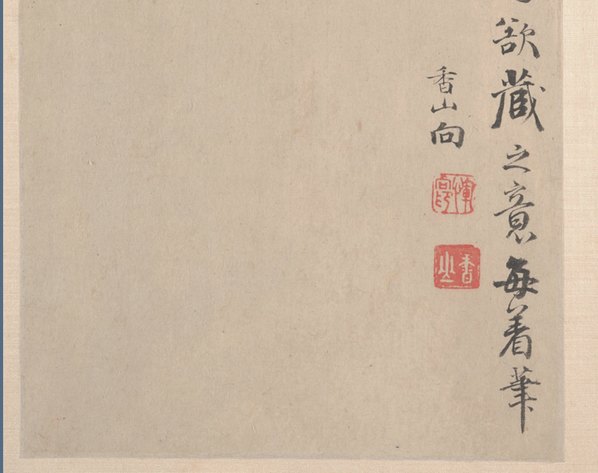 欲藏之意每着筆
香山向
惲向
香山